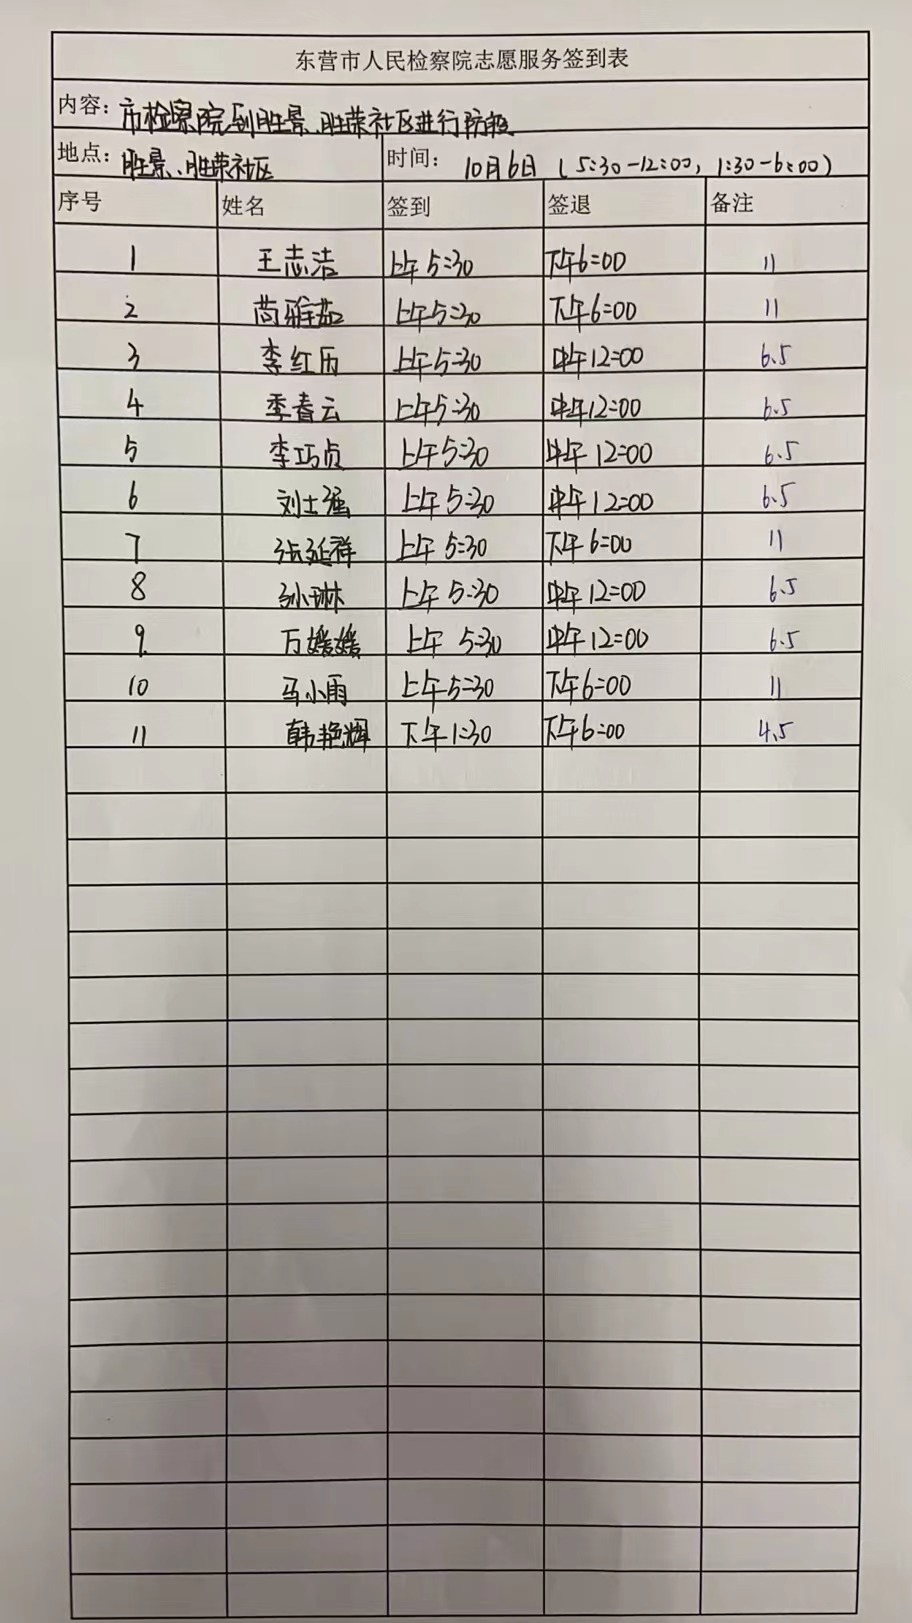 东营市人民检察院志愿服务签到表
内容：市检察院到胜景、胜荣社区进行防疫
地点：胜景、胜荣社区 时间：10月6日（5:30-12:00，1:30-6:00）
序号 姓名 签到 签退 备注
1 王志洁 上午5:30 下午6:00 11
2 苘雅茹 上午5:30 下午6:00 11
3 李红历 上午5:30 中午12:00 6.5
4 季春云 上午5:30 中午12:00 6.5
5 李巧贞 上午5:30 中午12:00 6.5
6 刘士强 上午5:30 中午12:00 6.5
7 张延祥 上午5:30 下午6:00 11
8 孙琳 上午5:30 中午12:00 6.5
9. 万媛媛 上午5:30 中午12:00 6.5
10 马小雨 上午5:30 下午6:00 11
11 韩艳辉 下午1:30 下午6:00 4.5